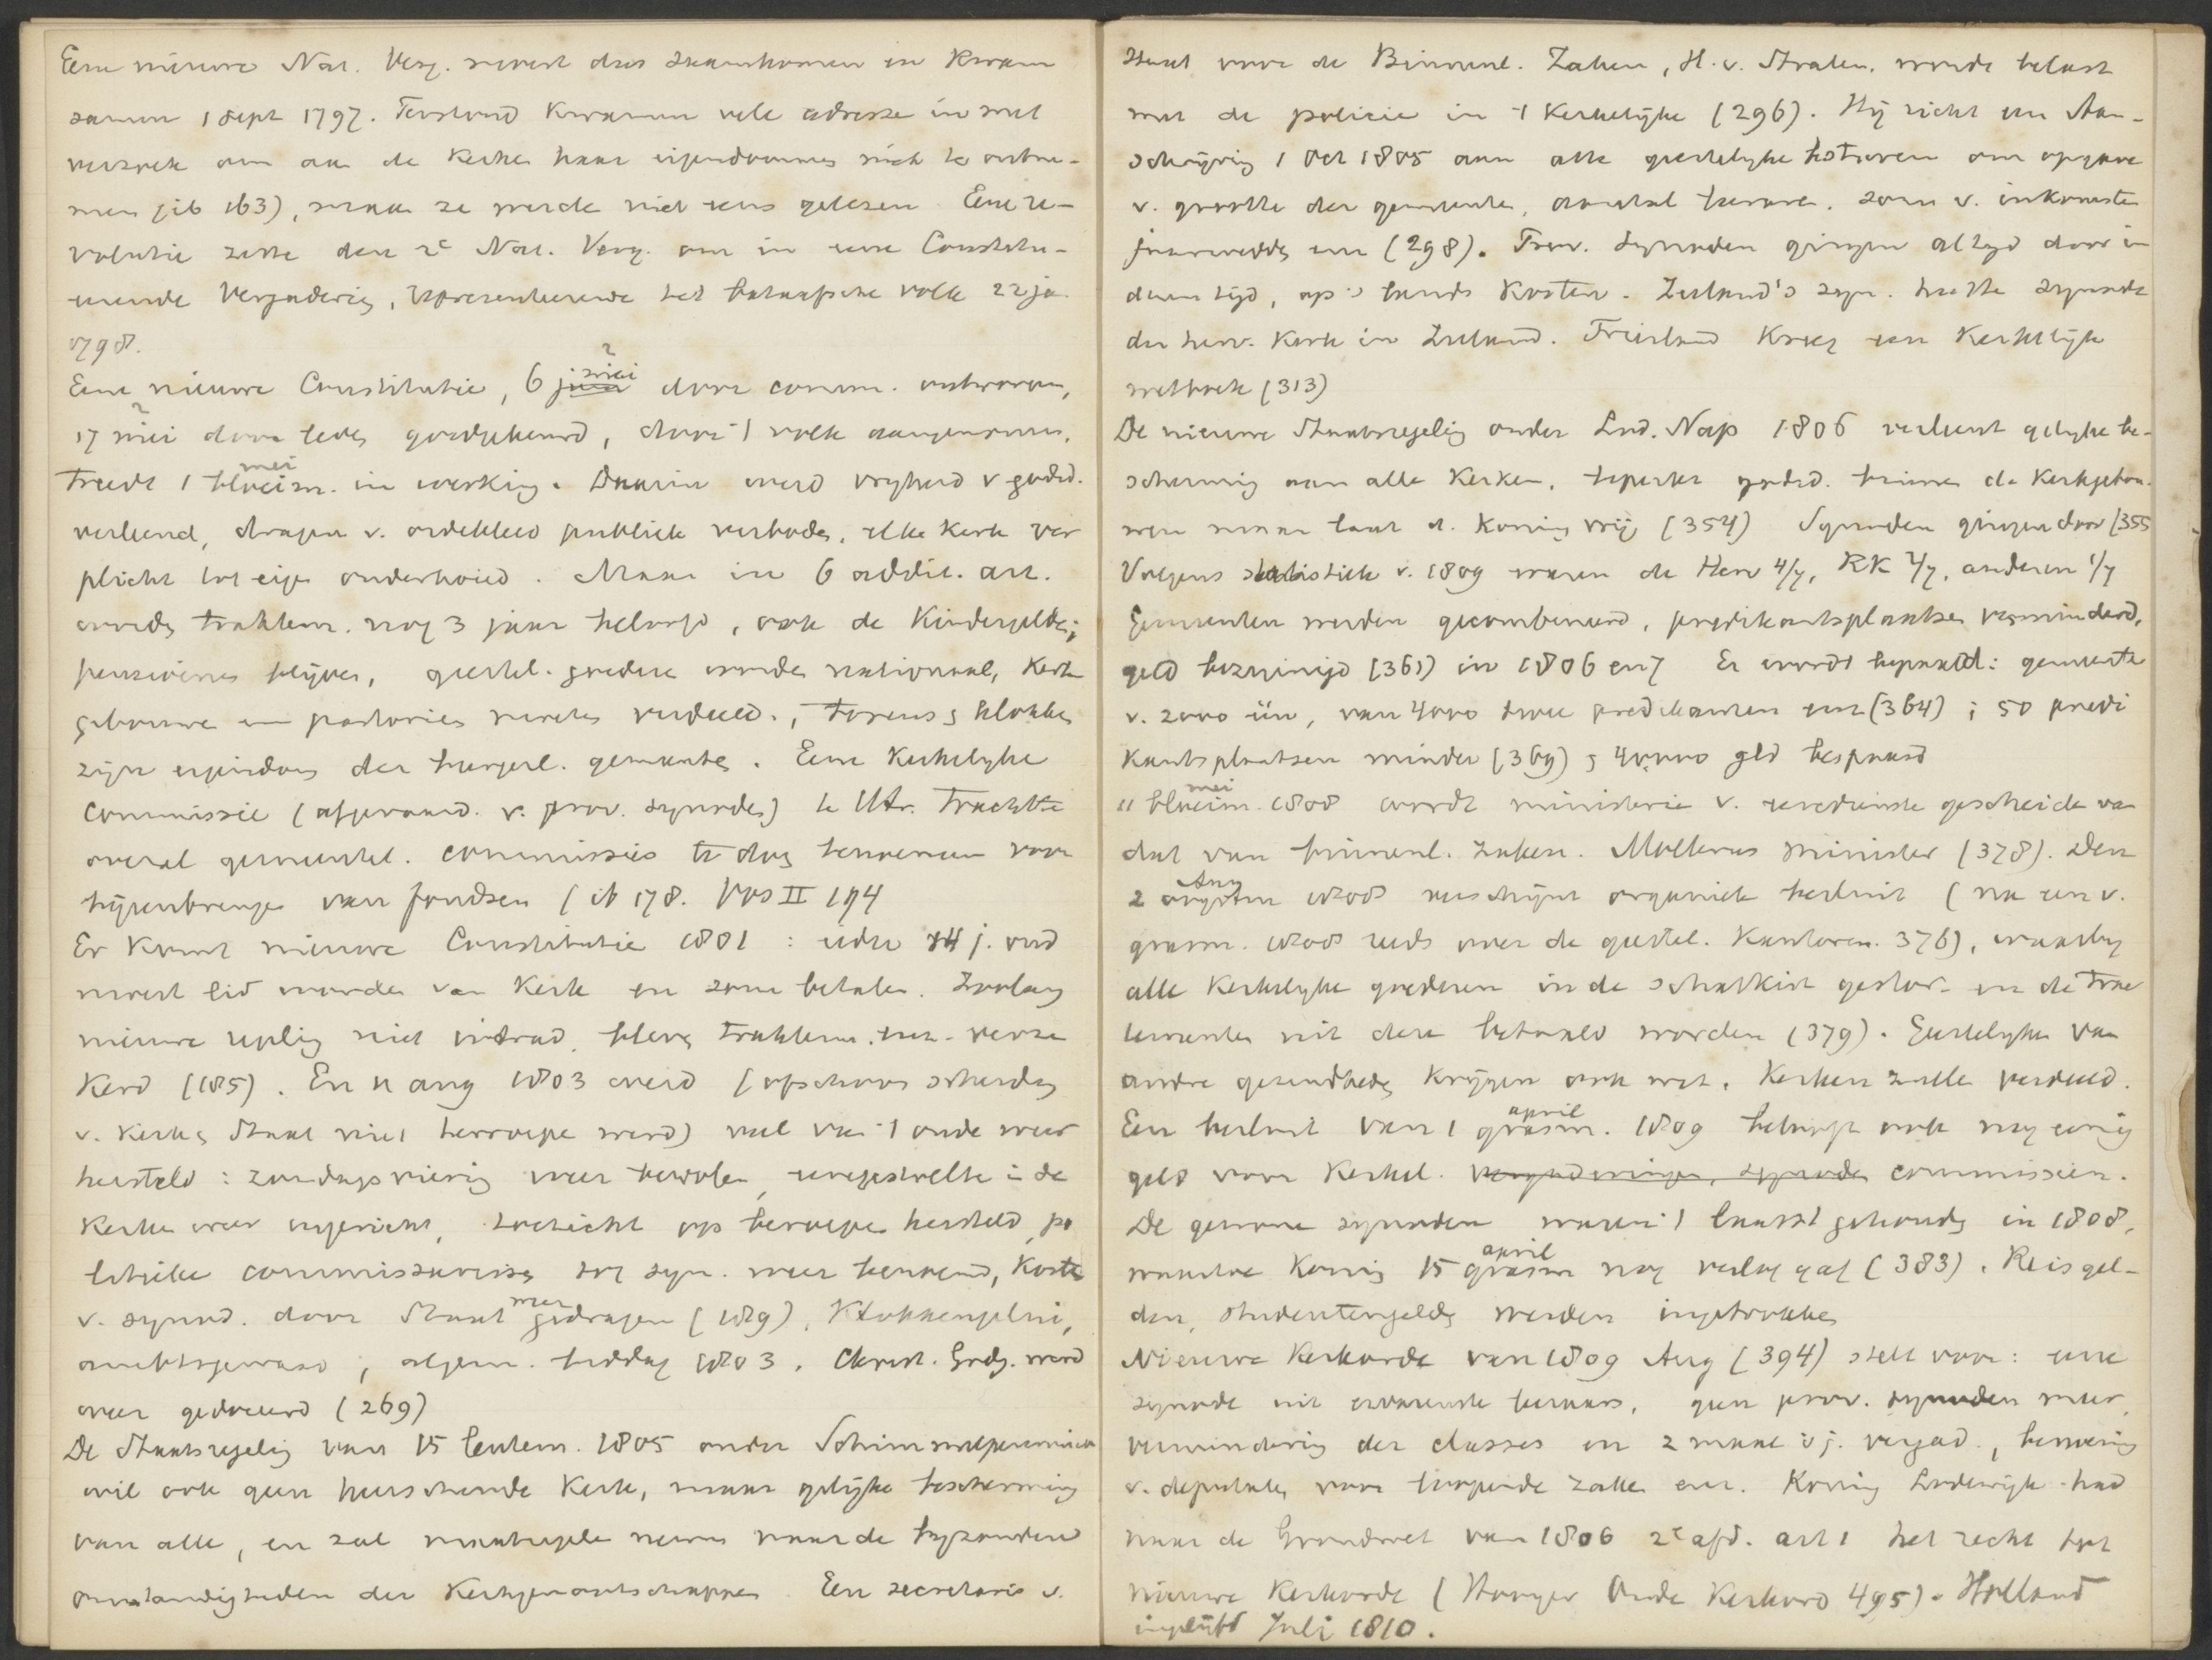 Eene nieuwe Nat. Verg. moest dus saamkomen en kwam
samen 1 Sept 1797. Terstond kwamen vele adresse in met
verzoek om aan de Kerke haar eigendommen niet te ontne-
men (ib 163), maar ze werde niet eens gelezen. Eene re-
volutie zette den 2e Nat. Verg. om in eene Constitu-
eerende Vergaderig, representeerende het bataafsche volk 22 ja
1798.
Eene nieuwe Constitutie, 6 juni mei door comm. ontworpen,
17 mei door leden goedgekeurd, door 't volk aangenomen,
treedt 1 bloeim. mei in werking. Daarin werd vryheid v godsd.
verleend, dragen v. ordekleed publiek verboden, elke Kerk ver
plicht tot eigen onderhoud. Maar in 6 addit. art.
worden traktem. nog 3 jaar beloofd, ook de Kindergelden;
pensioenen blijven, geestel. goedere worden nationaal, Kerk
gebouwe en pastorien moeten verdeeld., torens & klokken
zijn eigendom der burgerl. gemeente. Eene Kerkelyke
commissie (afgevaard. v. prov. synodes) te Utr. trachtte
overal gemeentel. commissies te doen benoemen voor
bijeenbrengen van fondsen (ib 178. Vos II 194
Er komt nieuwe Constitutie 1801: ieder 14 j. oud
moest lid worden van Kerk en som betalen. Zoolang
nieuwe regeling niet intrad, bleven traktem. enz. verze
kerd (185). En 11 aug 1803 werd (ofschoon scheiding
v. Kerk & Staat niet herroepe werd) veel van 't oude weer
hersteld: zondagsviering weer bevolen, weegestoelte in de
Kerke weer ingericht, toezicht op beroepen hersteld, po
litieke commissarissen tot syn. weer benoemd, Kosten
v. synod. door Staat weer gedragen (189), Klokkengelui,
ambtsgewaad, algem. biddag 1803. Christ. Godsg. werd
weer gedoceerd (269)
De Staatsregeling van 15 lentem. 1805 onder Schimmelpenninck
wil ook geen heerschende Kerk, maar gelijke bescherming
van alle, en zal maatregelen nemen naar de byzondere
omstandigheden der Kerkgenootschappen. Een secretaris v.
Staat voor de Binnenl. Zaken, H. v. Stralen, werde belast
met de policie in 't Kerkelijke (296). Hij richt een Aan-
schrijving 1 Oct 1805 aan alle geestelyke kotoren om opgave
v. grootte der gemeente, aantal leeraren, som v. inkomsten
jaarwedde enz (298). Prov. Synoden gingen altyd door in
dezen tijd, op 's lands Kosten. Zeeland's syn. heette synode
der herv. Kerk in Zeeland. Friesland kreeg een Kerkelijk
wetboek (313)
De nieuwe Staatsregeling onder Lod. Nap 1806 verleent gelyke be-
scherming aan alle Kerken, beperkt godsd. binnen de Kerkgebou-
wen maar laat d. Koning vrij (354) Synoden gingen door (355
Volgens statistiek v. 1809 waren de Herv 4/7, RK 2/7, anderen 1/7
Gemeenten werden gecombineerd, predikantsplaatsen verminderd,
geld bezuinigd (361) in 1806 en 7 Er wordt bepaald: gemeente
v. 2000 één, van 4000 twee predikanten enz (364); 50 predi
kantsplaatsen minder (369) & 40,000 gld bespaard
11 bloeim mei 1808 wordt ministerie v. eeredienste gescheide van
dat van binnenl. zaken. Mollerus minister (378). Den
2 oogstm Aug 1808 verschijnt organiek besluit (na een v.
grasm. 1808 reeds over de geestel. Kantoren. 376), waarby
alle Kerkelyke goederen in de schatkist gestor- en de trac
temente uit deze betaald worden (379). Geestelyken van
andre gezindheden krygen ook wat. Kerken zulle verdeeld.
Een besluit van 1 grasm. april 1809 belooft ook nog eenig
geld voor Kerkel. vergaderingen, synoden commissien.
De gewone synoden waren 't laatst gehouden in 1808,
waarvan Koning 15 grasm april nog verlof gaf (383). Reisgel-
den, studentengelden werden ingetrokken
Nieuwe Kerkorde van 1809 Aug (394) stelt voor: eene
synode uit ervarenste leeraars, geen prov. synoden meer,
vermindering der classes en 2 maal 's j. vergad., benoeming
v. deputaten voor loopende zaken enz. Koning Lodewijk had
naar de Grondwet van 1806 2e afd. art 1 het recht tot
nieuwe Kerkorde (Hooijer Oude Kerkord 495). Holland
ingelijfd Juli 1810.